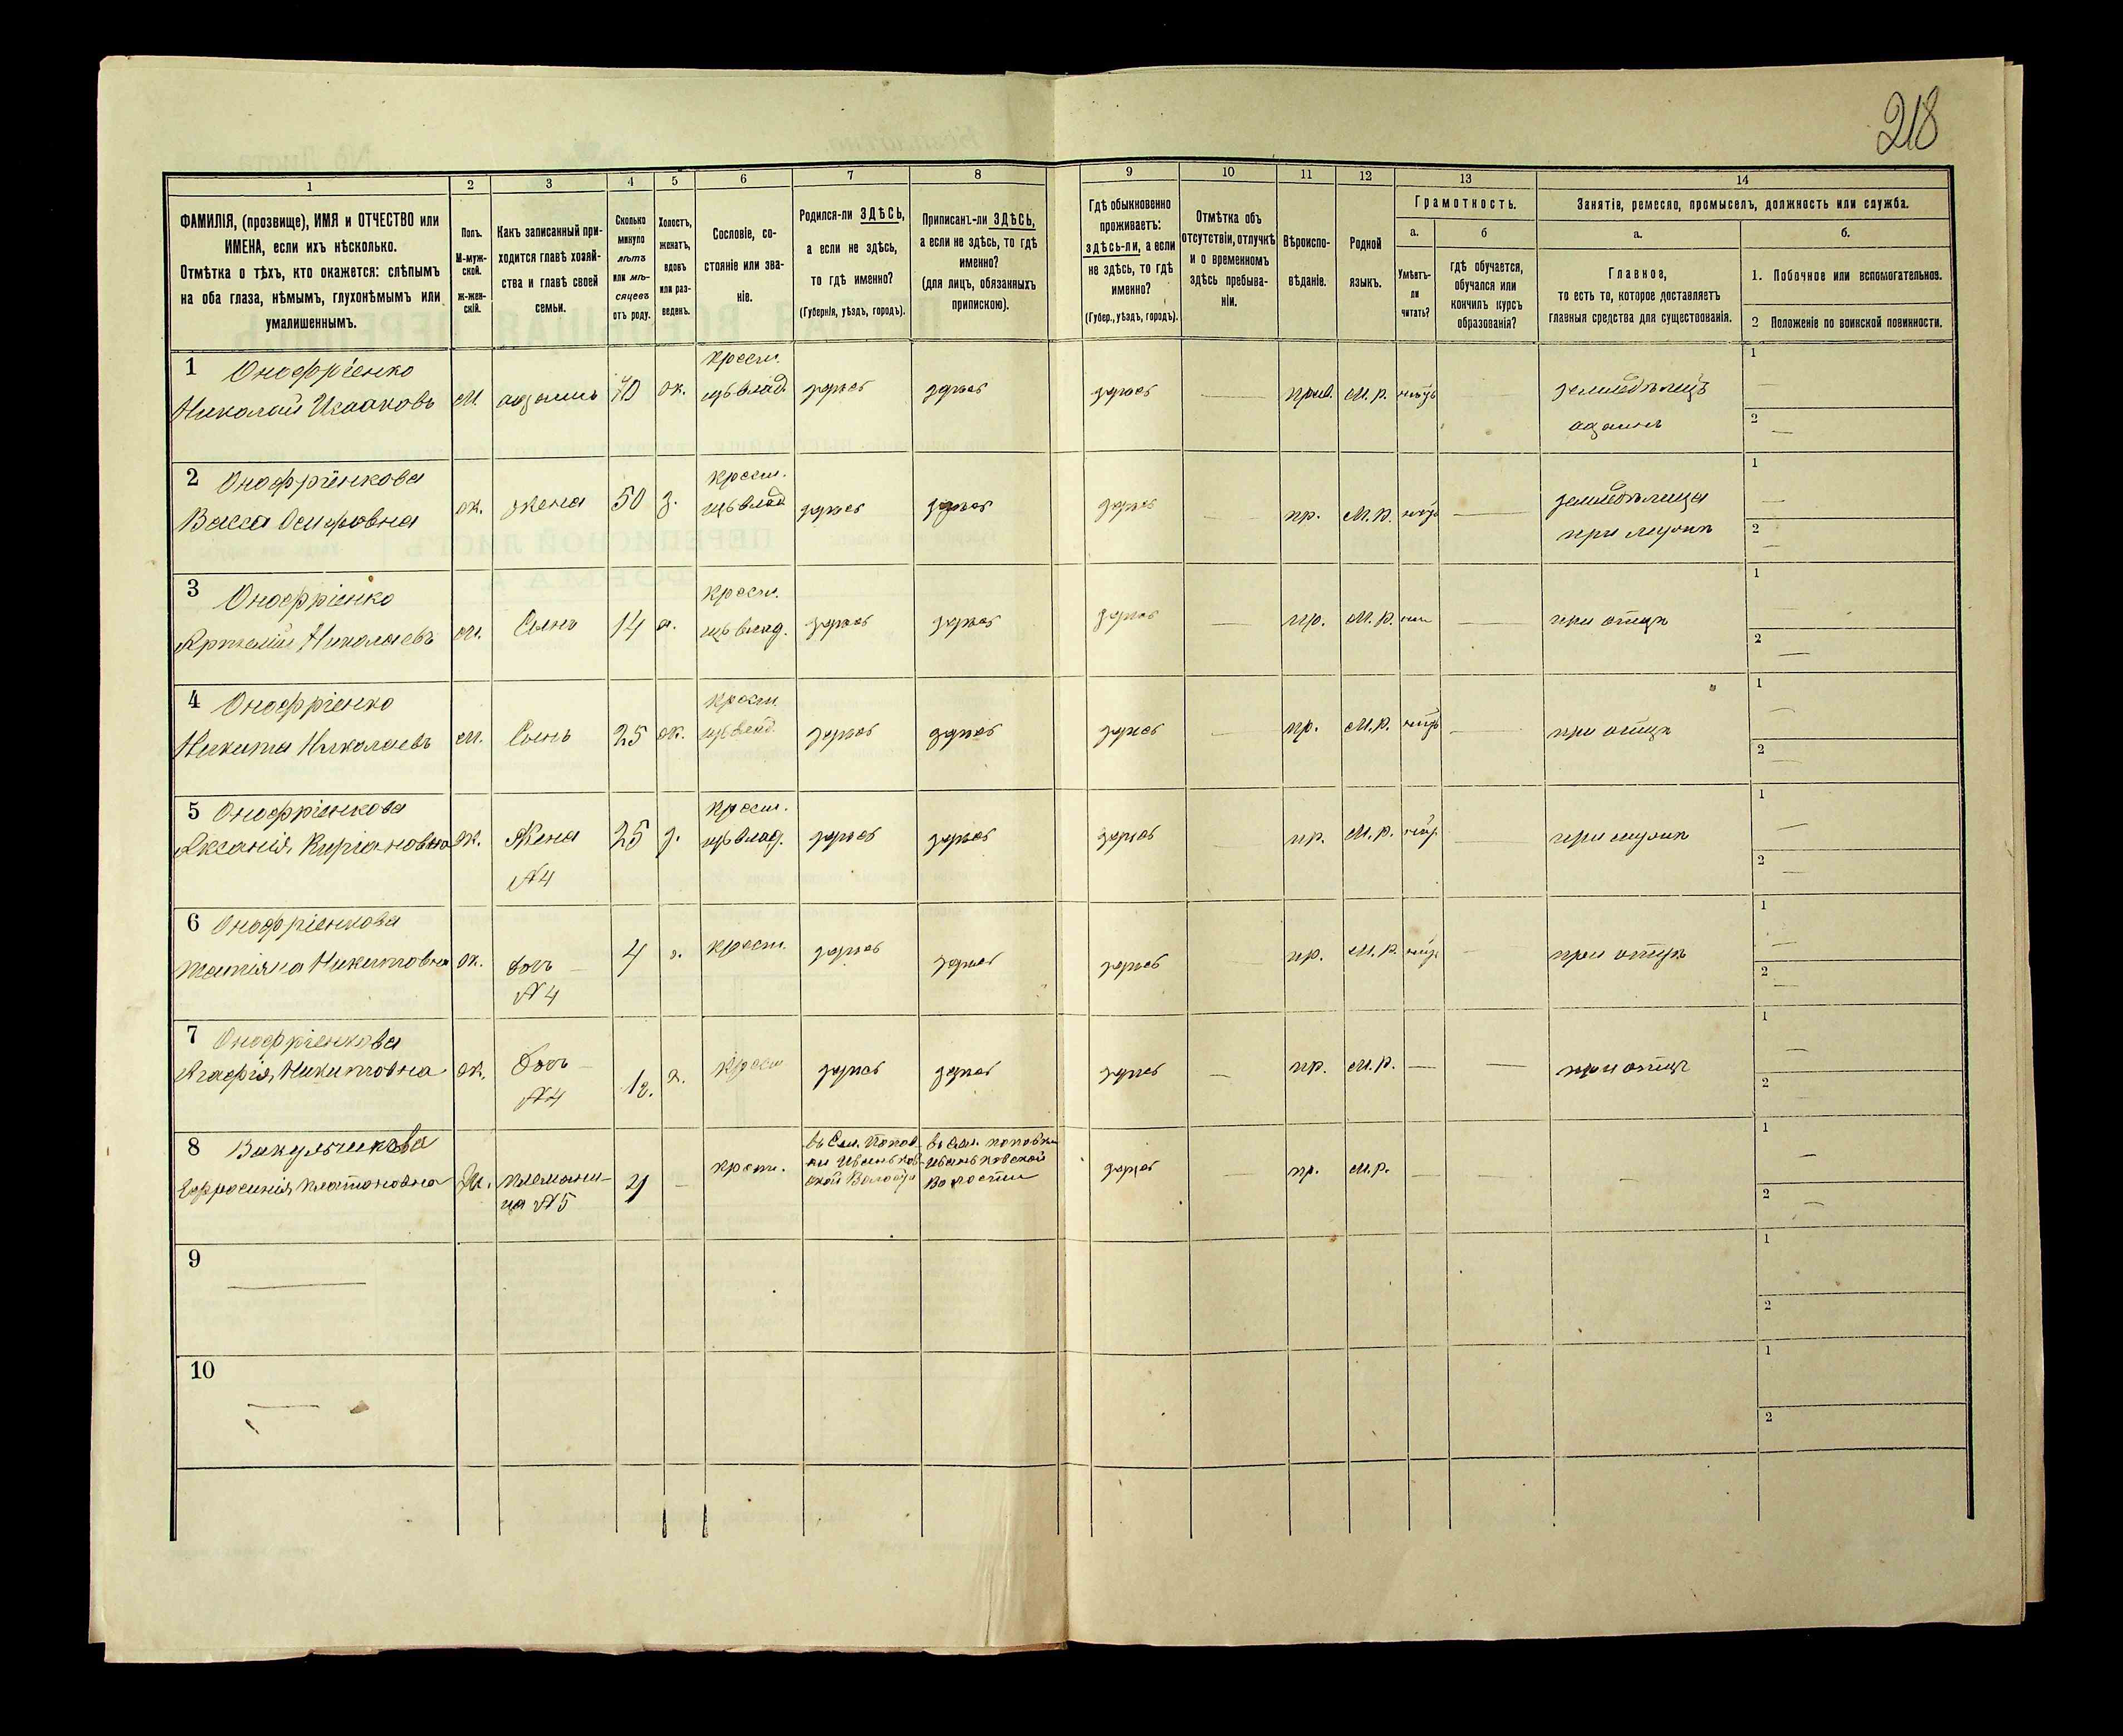 218
1
2
3
4
5
6
7
8
9
10
11
12
13
14
ФАМИЛІЯ, (прозвище), ИМЯ и ОТЧЕСТВО или
ИМЕНА, если ихъ нѣсколько.
Отмѣтка о тѣхъ, кто окажется: слѣпымъ
на оба глаза, нѣмымъ, глухонѣмымъ или
умалишеннымъ.
Полъ.
М-муж-
ской.
ж-жен-
скій.
Какъ записанный при-
ходится главѣ хозяй-
ства и главѣ своей
семьи.
Сколько
минуло
лѣтъ
или мѣ-
сяцевъ
отъ роду.
Холостъ,
женатъ,
вдовъ
или раз-
веденъ.
Сословіе, со-
стояніе или зва-
ніе.
Родился-ли ЗДѢСЬ,
а если не здѣсь,
то гдѣ именно?
(Губернія, уѣздъ, городъ).
Приписанъ-ли ЗДѢСЬ,
а если не здѣсь, то гдѣ
именно?
(для лицъ, обязанныхъ
припискою).
Гдѣ обыкновенно
проживаетъ:
здѣсь-ли, а если
не здѣсь, то гдѣ
именно?
(Губер., уѣздъ, городъ).
Отмѣтка объ
отсутствіи, отлучкѣ
и о временномъ
здѣсь пребыва-
ніи.
Вѣроиспо-
вѣданіе.
Родной
языкъ.
Грамотность.
а.
Умѣетъ-
ли
читать?
б
гдѣ обучается,
обучался или
кончилъ курсъ
образованія?
Занятіе, ремесло, промыселъ, должность или служба.
а.
Главное,
то есть то, которое доставляетъ
главныя средства для существованія.
б.
1. Побочное или вспомогательное.
2 Положеніе по воинской повинности.
1 Онофріенко
Николай Исааковъ м. 70 ж. крест. здѣсь здѣсь здѣсь прав. м.р. нѣтъ земледѣлецъ
1
2
2 Онофріенкова
Васса Осиповна ж. жена 50 з. крест. здѣсь здѣсь здѣсь пр. м.р. нѣтъ
при мужѣ
1
2
3 Онофріенко
Николаевъ м. Сынъ 14 крест. здѣсь здѣсь здѣсь пр. м.р. при отцѣ
1
2
4 Онофріенко
Никита Николаевъ м. Сынъ 25 ж. крест. здѣсь здѣсь здѣсь пр. м.р. нѣтъ при отцѣ
1
2
5 Онофріенкова
Киріановна ж. Жена 25 з. крест. здѣсь здѣсь здѣсь пр. м.р. при мужѣ
№4
1
2
6 Онофріенкова
Никитовна ж. дочь 4 крест. здѣсь здѣсь здѣсь пр. м.р. при отцѣ
№4
1
2
7 Онофріенкова
Агафія Никитовна ж. дочь 1г. крест здѣсь здѣсь здѣсь пр. м.р. при отцѣ
№4
1
2
8
Платоновна крест. здѣсь пр. м.р.
№5
1
2
9
1
2
10
1
2